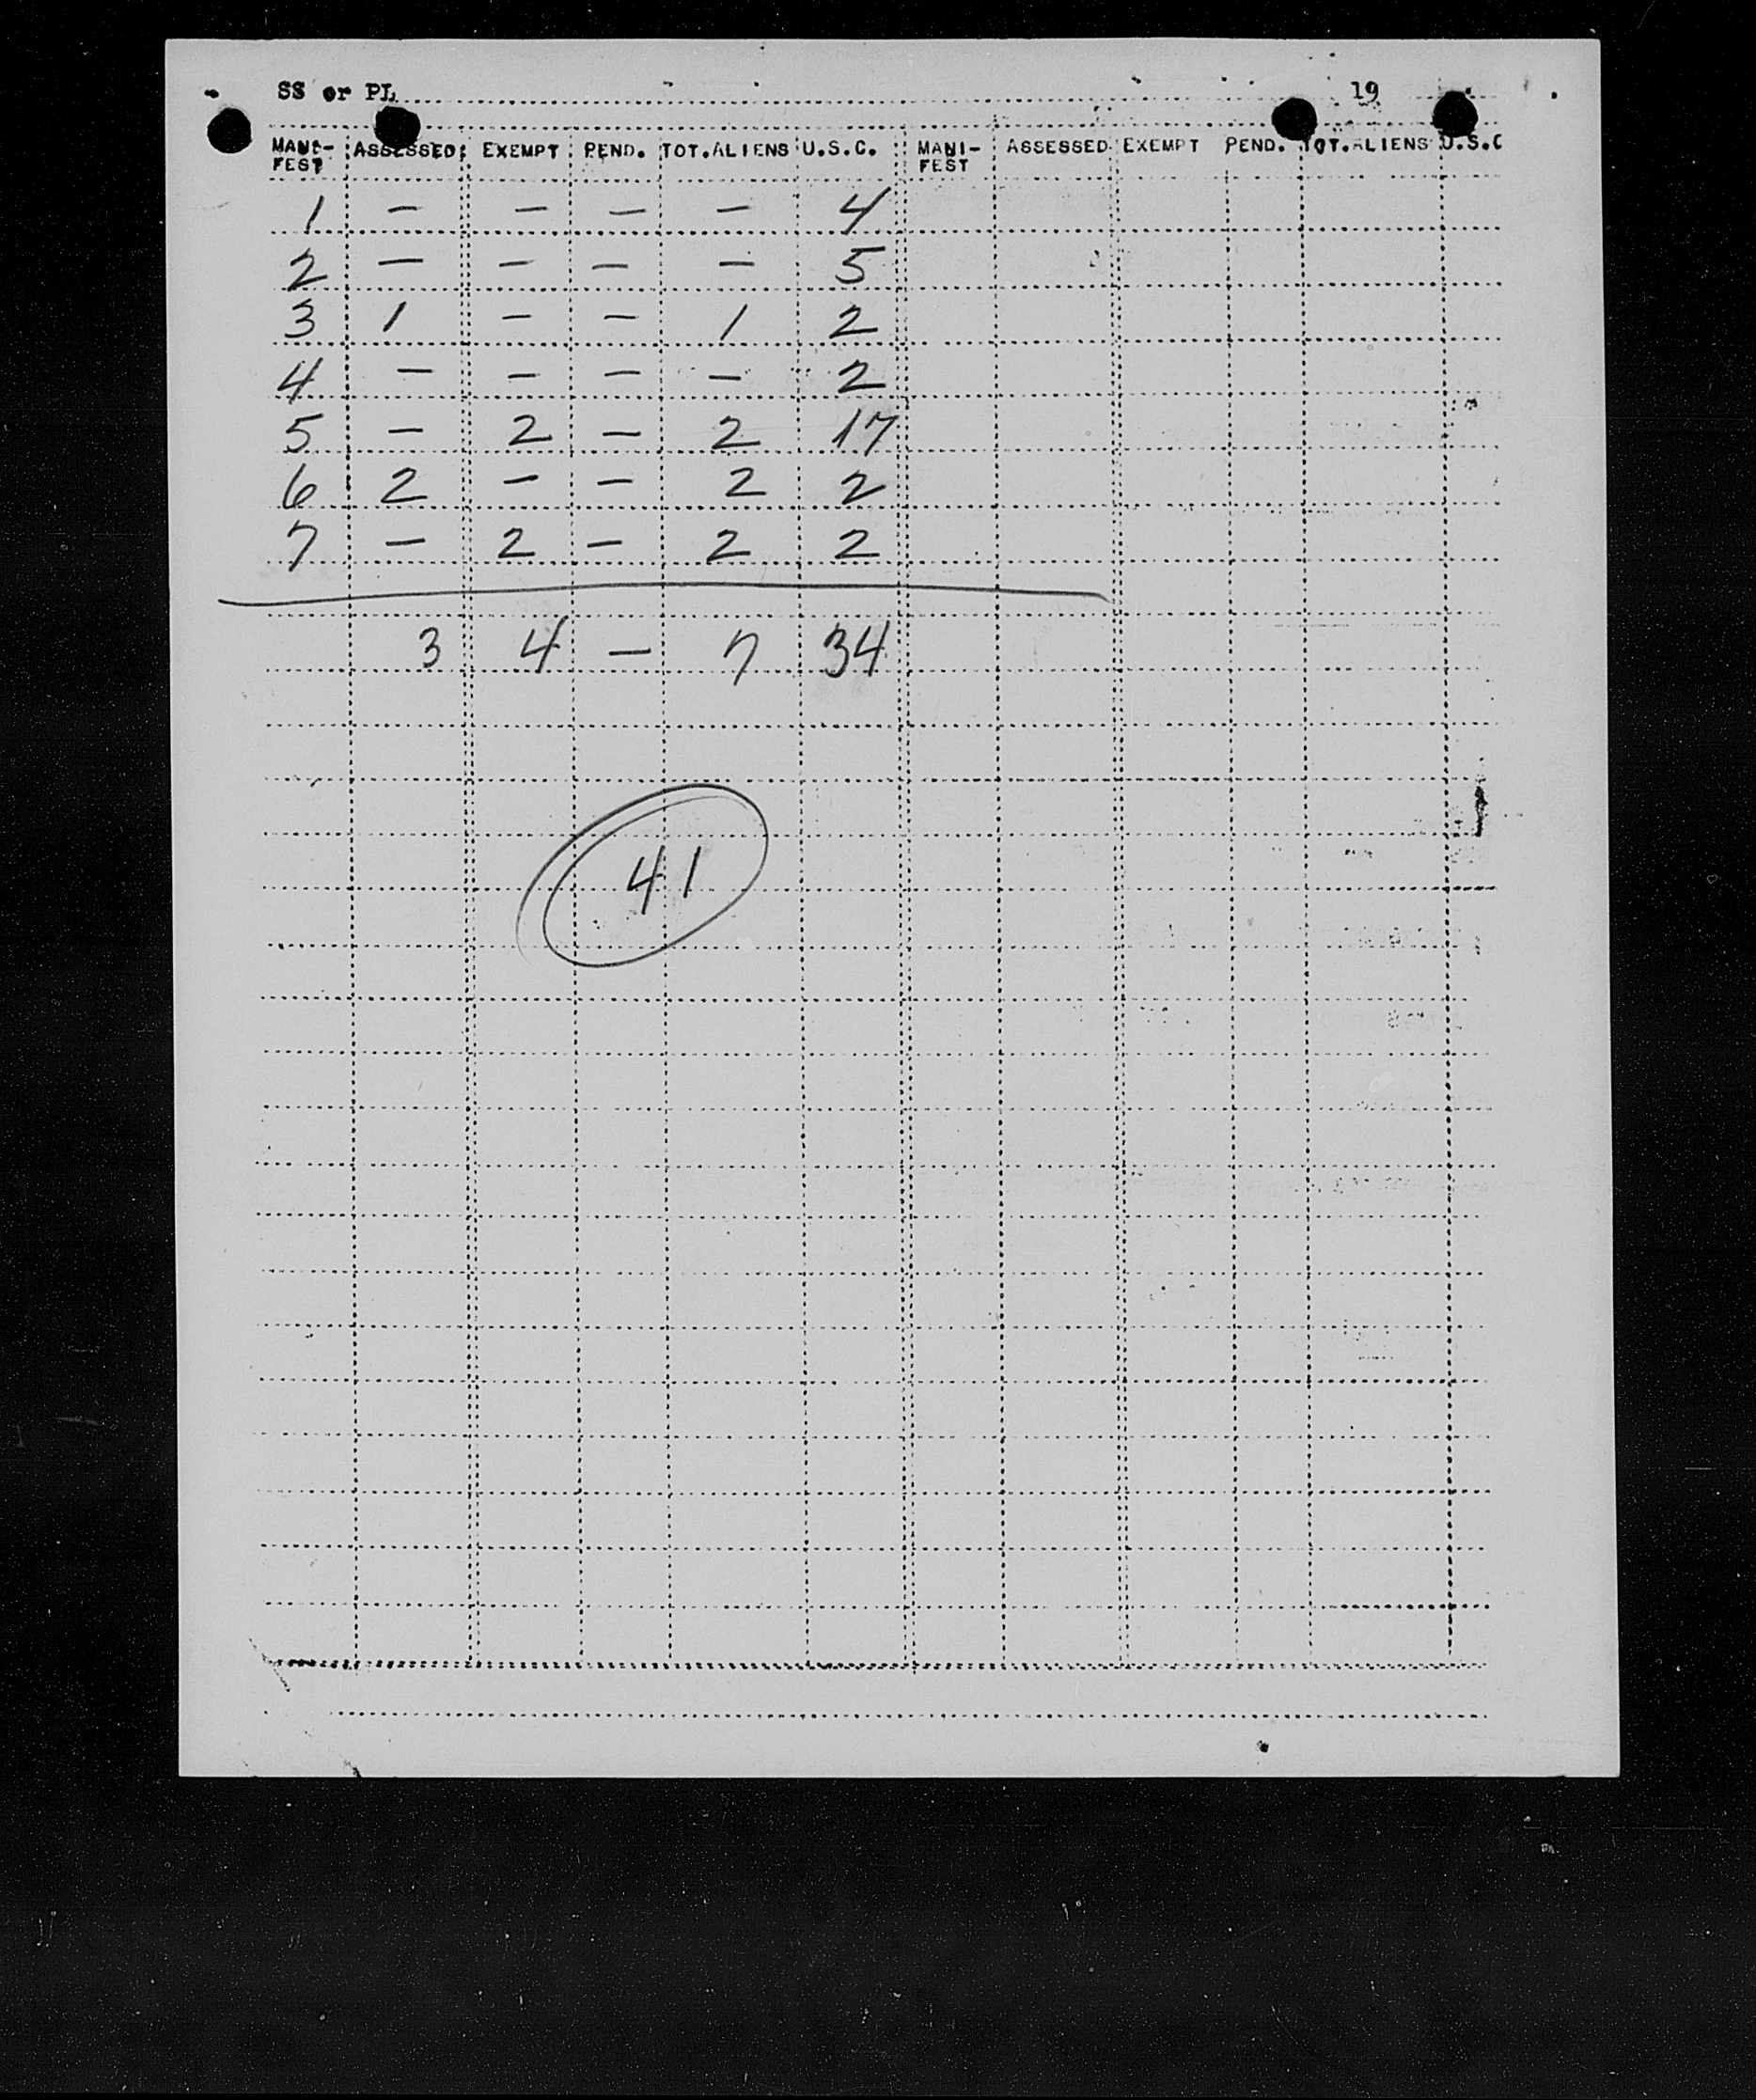 SS or PL 19
MANI- ASSESSED EXEMPT PEND. TOT.ALIENS U.S.C. MANI- ASSESSED EXEMPT PEND. TOT.ALIENS U.S.C
FEST FEST
1 — — — — 4
2 — — — — 5
3 1 — — 1 2
4 — — — — 2
5 — 2 — 2 17
6 2 — — 2 2
7 — 2 — 2 2
3 4 — 7 34
41